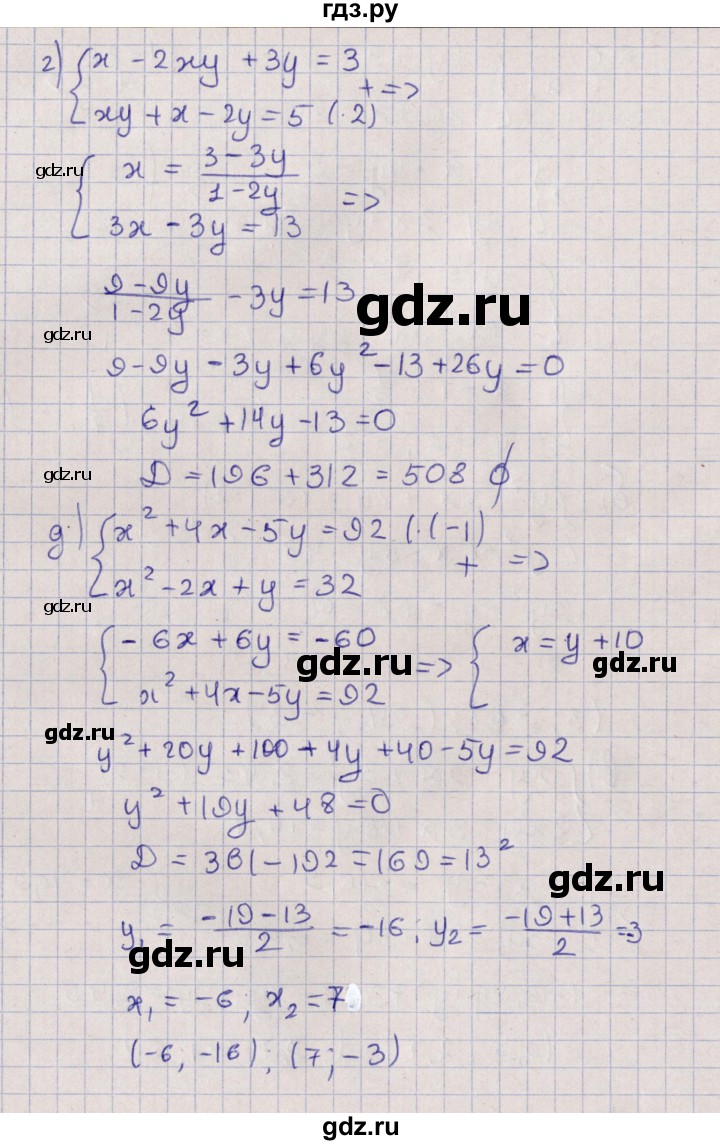 гдз.ру
г) { x - 2xy + 3y = 3
+ =>
xy + x - 2y = 5 (·2)
gdz.ru
{ x = (3 - 3y)/(1 - 2y)
=>
3x - 3y = 13
(9 - 9y)/(1 - 2y) - 3y = 13
gdz.ru
gdz.ru
9 - 9y - 3y + 6y² - 13 + 26y = 0
6y² + 14y - 13 = 0
gdz.ru
D = 196 + 312 = 508 ∅
д) { x² + 4x - 5y = 92 (·(-1)
+ =>
x² - 2x + y = 32
gdz.ru
{ - 6x + 6y = -60 => { x = y + 10
gdz.ru
gdz.ru
x² + 4x - 5y = 92
gdz.ru
y² + 20y + 100 + 4y + 40 - 5y = 92
y² + 19y + 48 = 0
D = 361 - 192 = 169 = 13²
gdz.ru
y₁ = (-19 - 13)/2 = -16; y₂ = (-19 + 13)/2 = -3
gdz.ru
x₁ = -6; x₂ = 7
(-6; -16); (7; -3)
gdz.ru